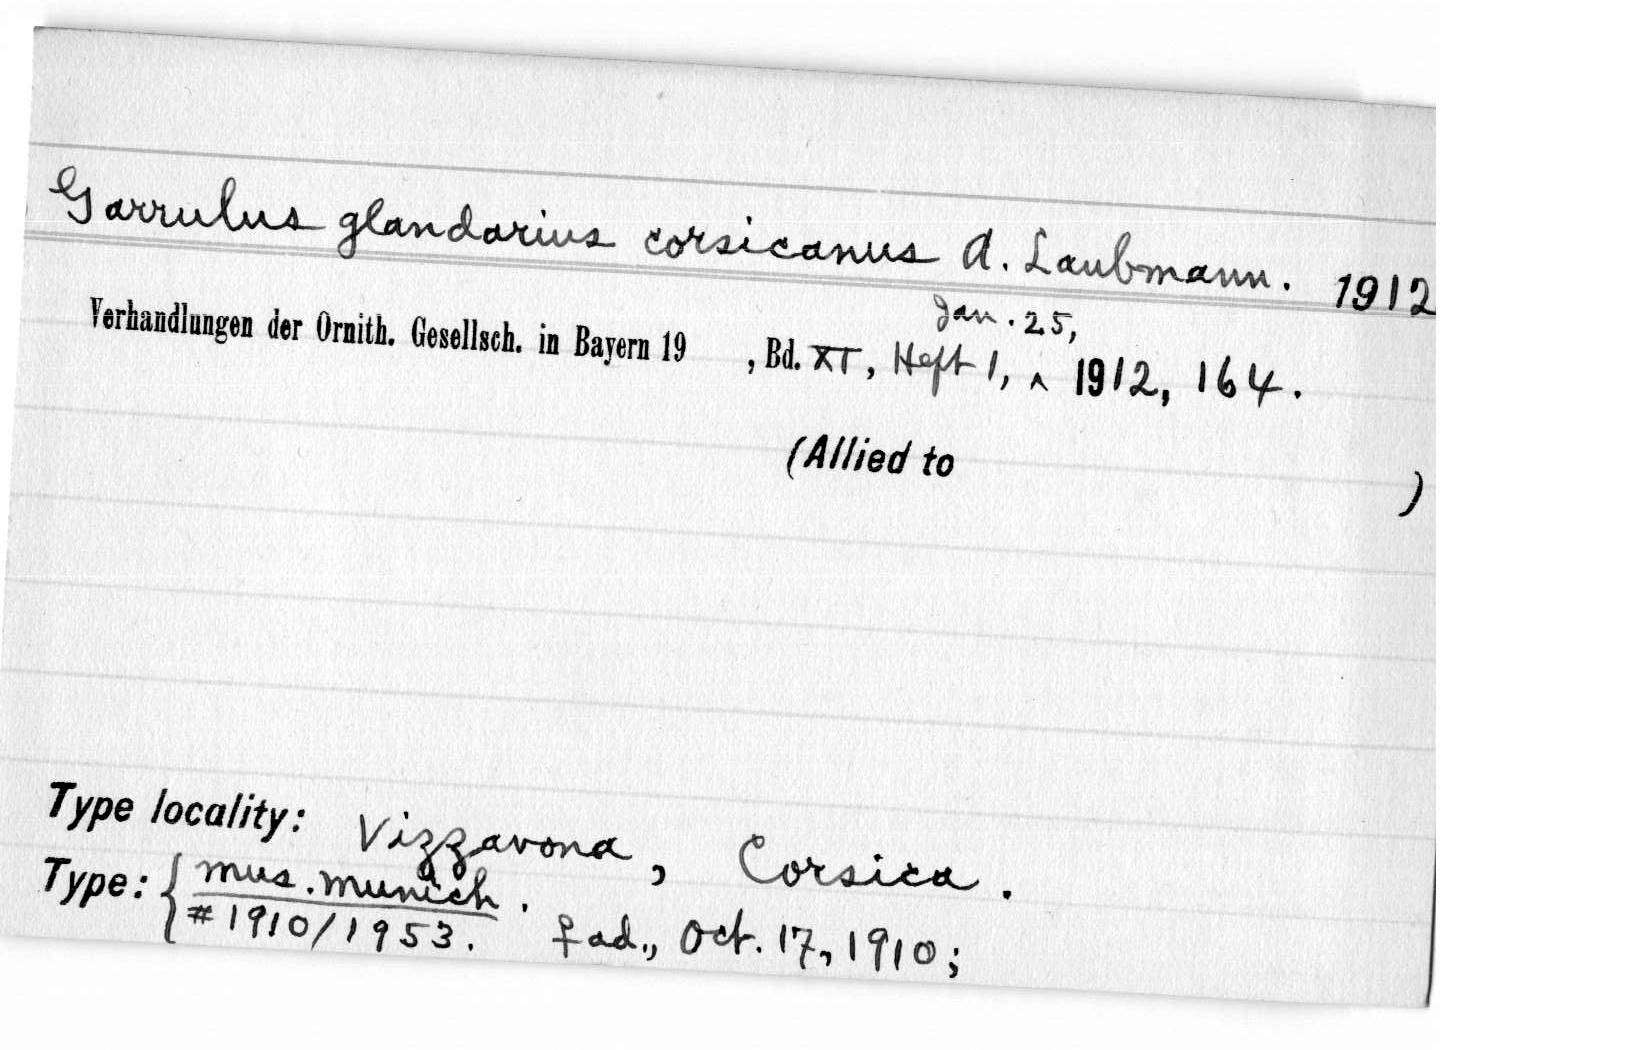 Garrulus glandarius corsicanus A. Laubmann. 1912
Jan. 25,
Verhandlungen der Ornith. Gesellsch. in Bayern 19 , Bd. XI, Heft 1, ^ 1912, 164.
(Allied to )
Type locality: Vizzavona, Corsica.
Type: { mus. munich.
#1910/1953. ♀ ad., Oct. 17, 1910;